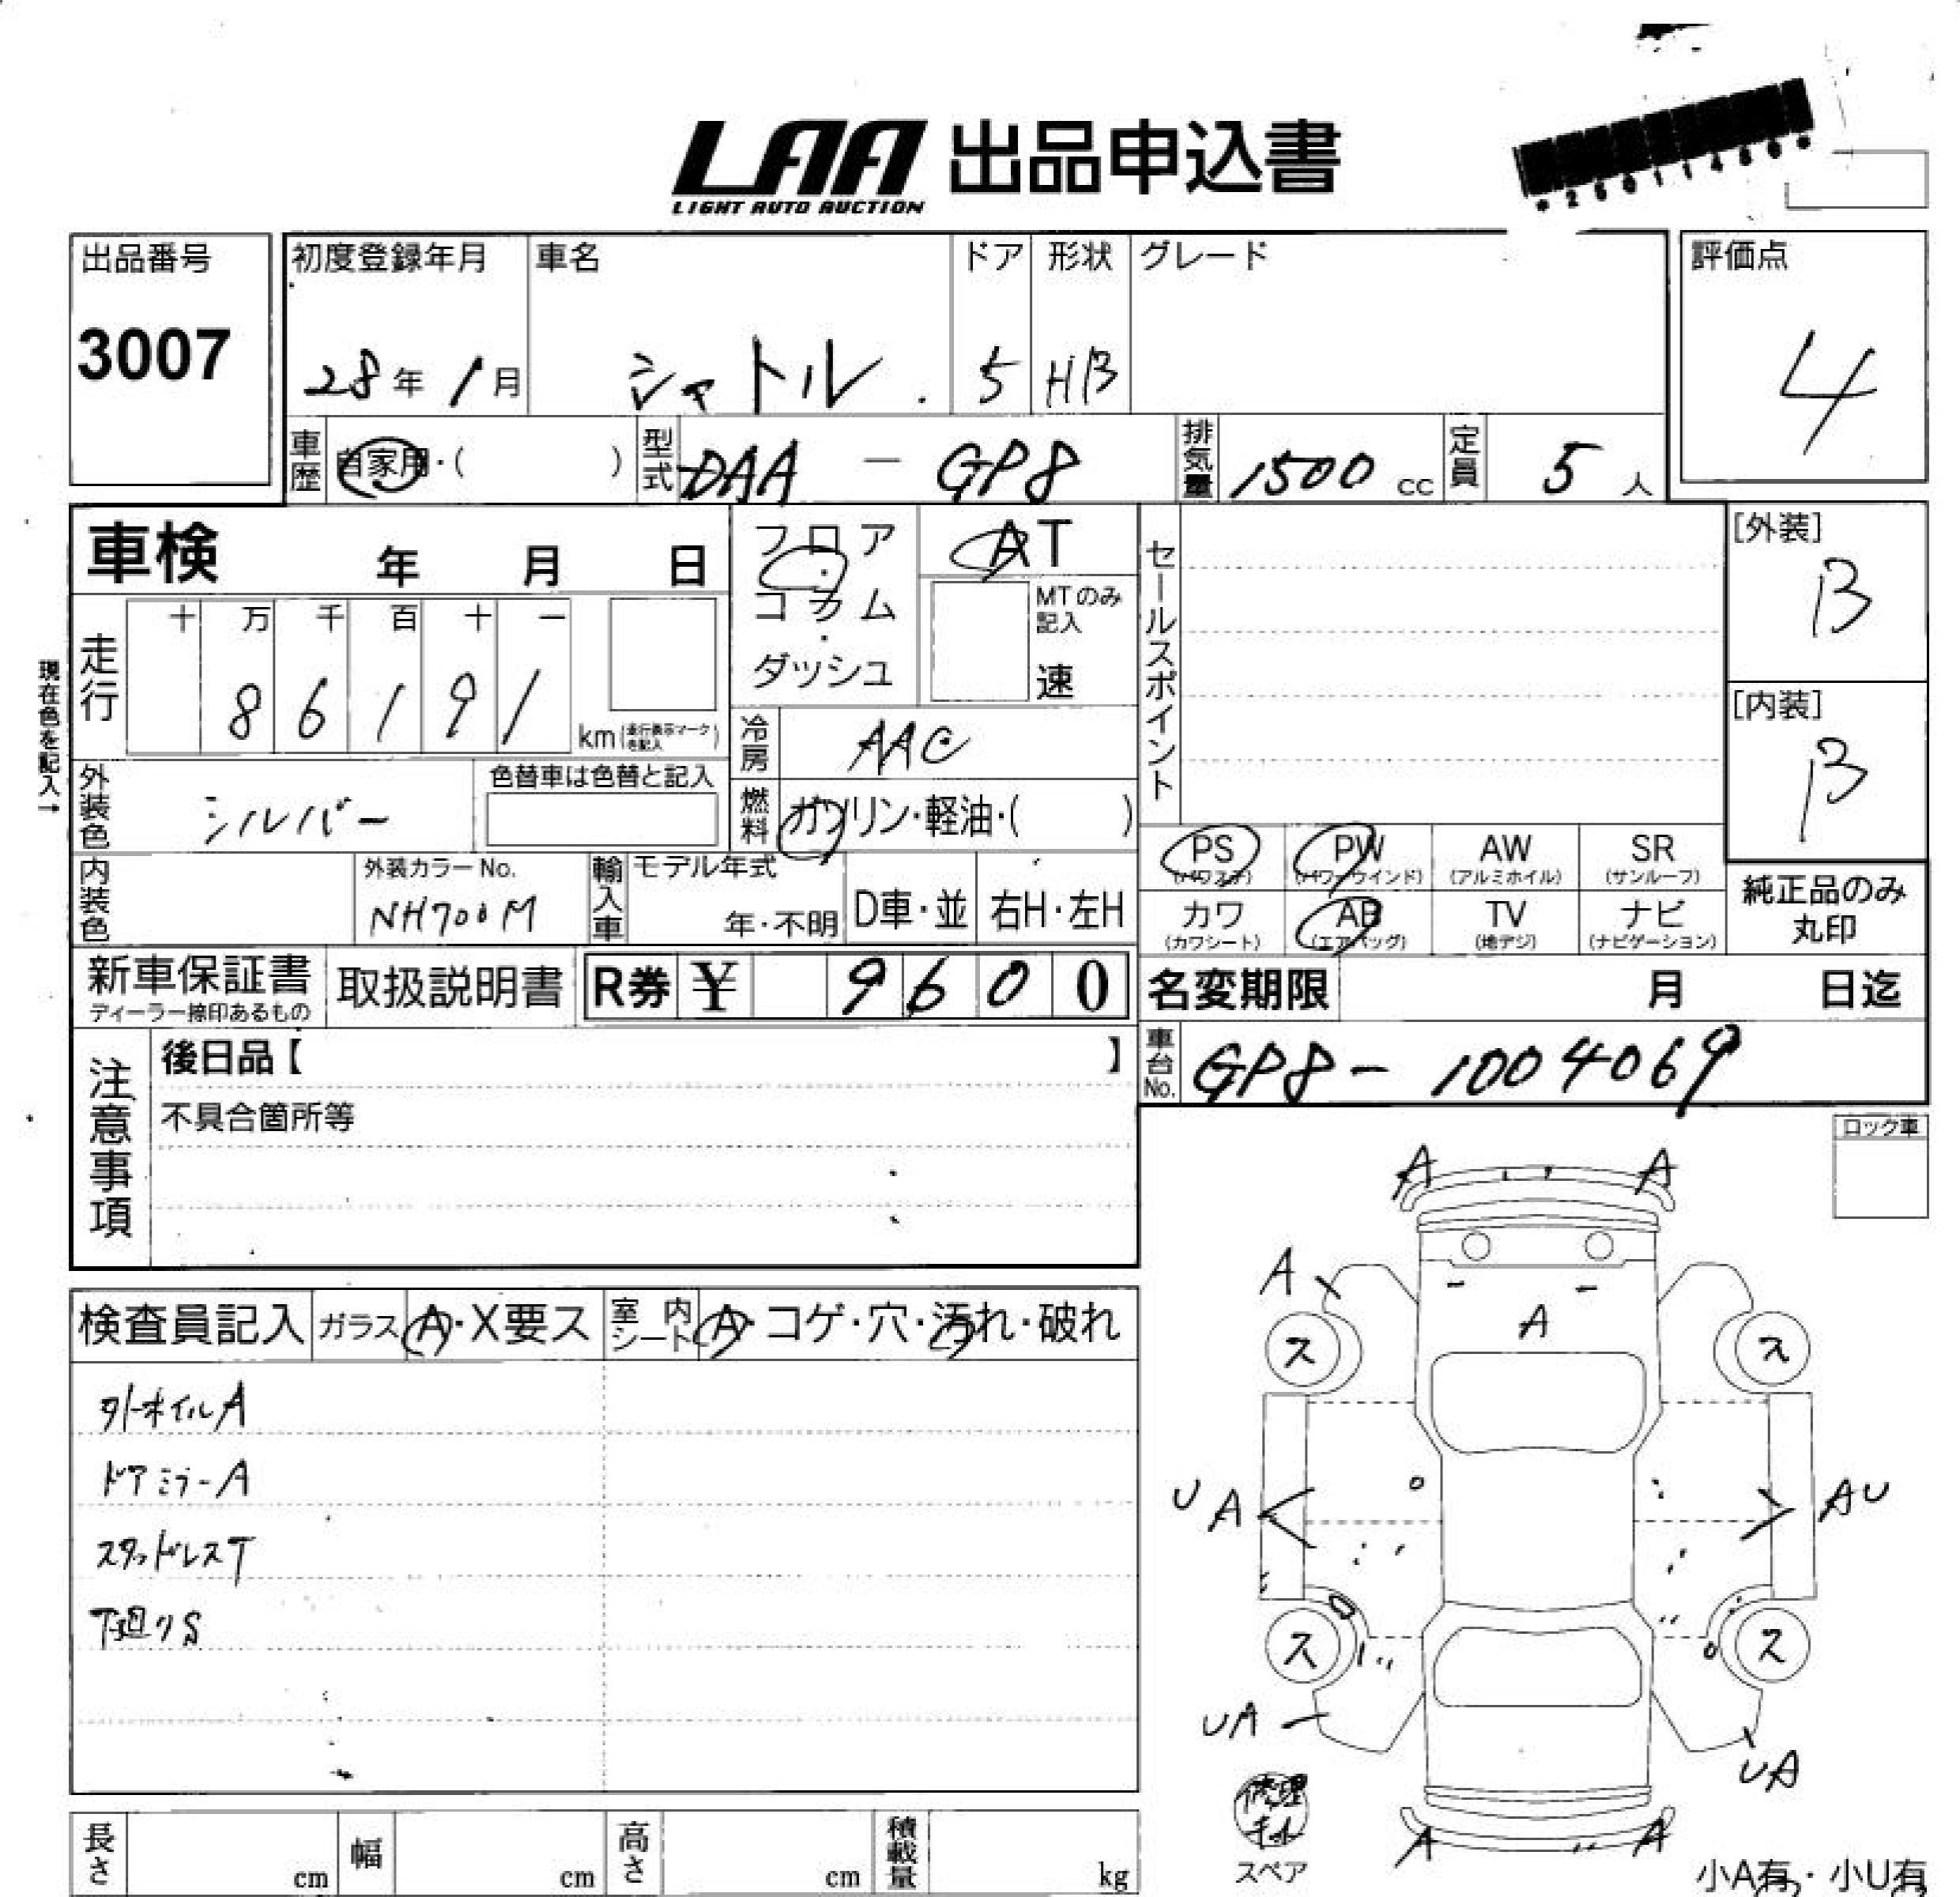 LAA 出品申込書
LIGHT AUTO AUCTION
*25011480*
出品番号 初度登録年月 車名 ドア 形状 グレード 評価点
3007 28年 1月 シャトル 5 HB 4
車歴 自家用・( ) 型式 DAA - GP8 排気量 1500 cc 定員 5 人
車検 年 月 日
フロア・コラム・ダッシュ
AT
MTのみ記入
速
セールスポイント
[外装]
B
[内装]
B
現在色を記入→
走行 十 万 千 百 十 一
8 6 1 9 1 km(走行表示マークを記入)
冷房 AAC
外装色 シルバー 色替車は色替と記入
燃料 ガソリン・軽油・( )
PS (パワステ) PW (パワーウインド) AW (アルミホイル) SR (サンルーフ)
カワ (カワシート) AB (エアバッグ) TV (地デジ) ナビ (ナビゲーション)
純正品のみ丸印
内装色 外装カラーNo. NH700M
輸入車 モデル年式 年・不明 D車・並 右H・左H
新車保証書 ディーラー捺印あるもの
取扱説明書
R券 ¥ 9 6 0 0
名変期限 月 日迄
車台No. GP8-1004069
注意事項
後日品【 】
不具合箇所等
ロック車
検査員記入 ガラス A・X要ス 室内シート A・コゲ・穴・汚れ・破れ
タイホイルA
ドアミラーA
スタッドレスT
下廻りS
A A
A
A
ス ス
UA AU
ス ス
UA UA
A A
修理キット
スペア
小A有・小U有
長さ cm 幅 cm 高さ cm 積載量 kg